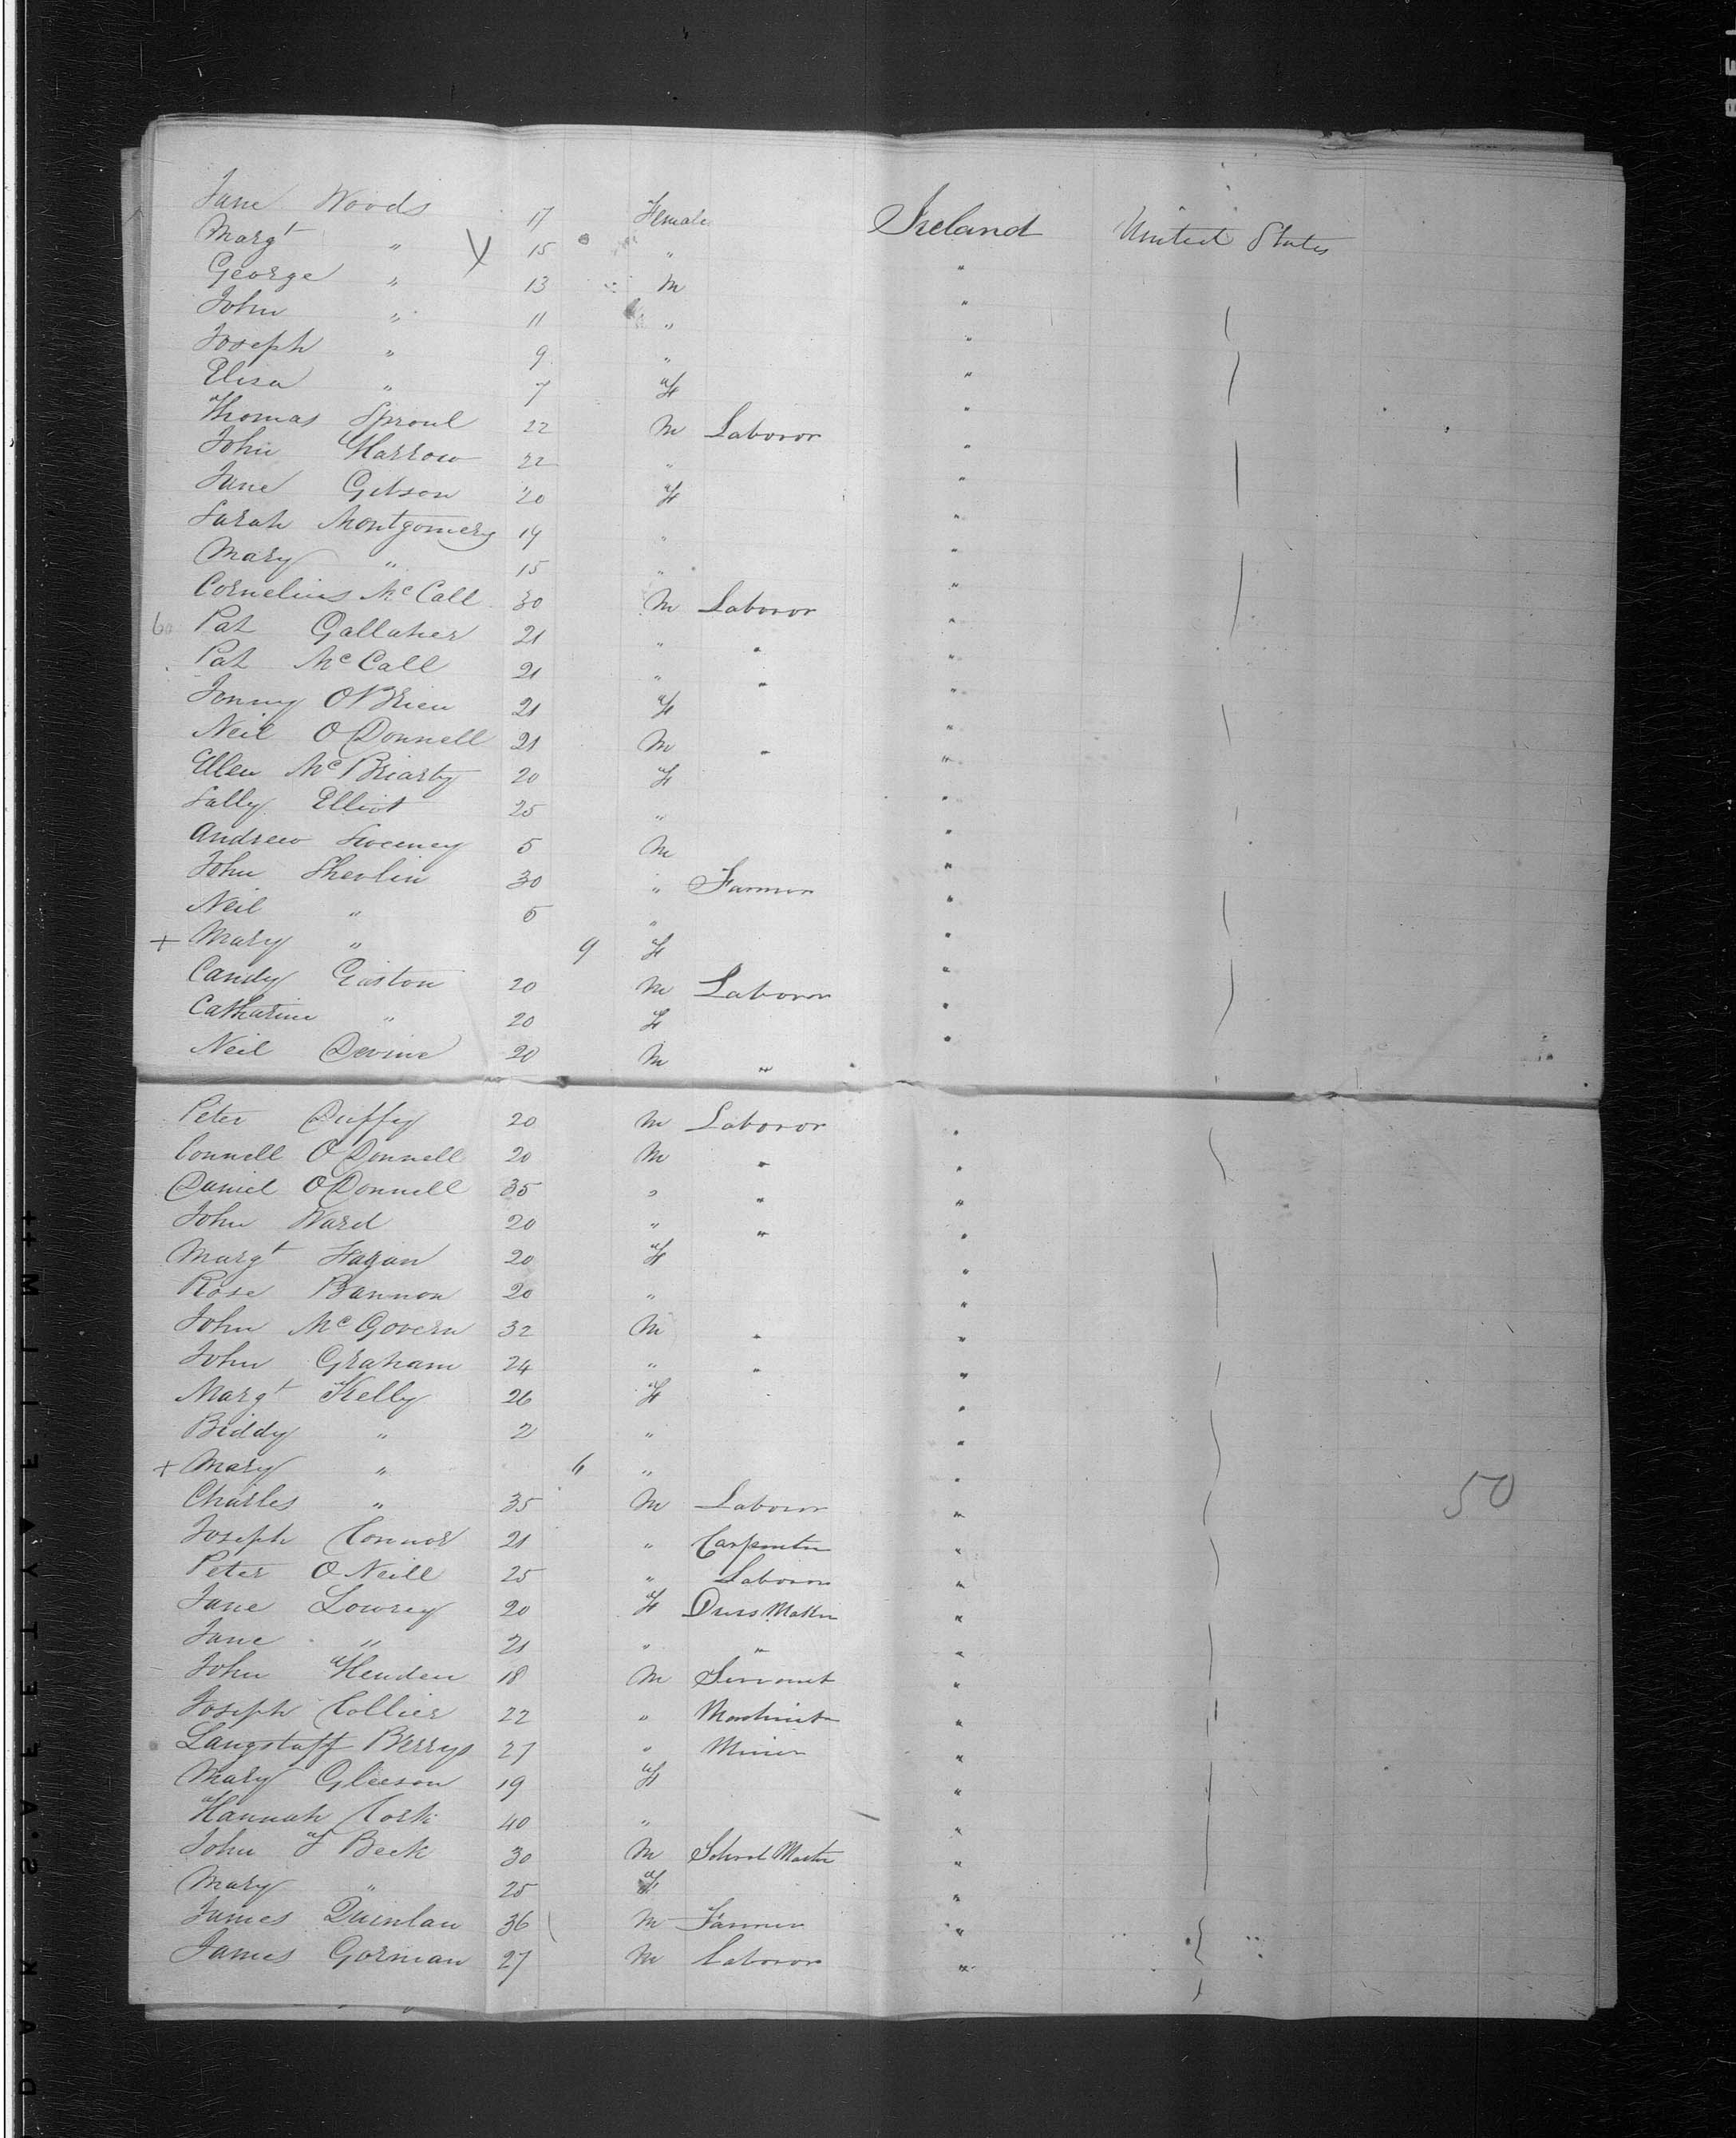 Jane Woods 17 Female Ireland United States
Margt " 15 " "
George " 13 M "
John " 11 " "
Joseph " 9 " "
Eliza " 7 F "
Thomas Sproul 22 M Laboror "
John Harrow 22 " "
Jane Gibson 20 F "
Sarah Montgomery 19 " "
Mary " 15 " "
Cornelius McCall 30 M Laboror "
Pat Gallaher 21 " " "
Pat McCall 21 " " "
O'Brien 21 F "
Neil O Donnell 21 M " "
Ellen McBriarty 20 F "
Sally Elliot 25 " "
Andrew Sweeney 5 M "
John Shevlin 30 " Farmer "
Neil " 5 " "
+ Mary " 9 F "
Candy Easton 20 M Laboror "
Catharine " 20 F "
Neil Devine 20 M "
Peter Duffy 20 M Laboror "
Connell O Donnell 20 M " "
Daniel O Donnell 35 " " "
John Ward 20 " " "
Margt Fagan 20 F "
Rose Bannon 20 " "
John McGovern 32 M " "
John Graham 24 " " "
Margt Kelly 26 F "
Biddy " 2 " "
+ Mary " 6 " "
Charles " 35 M Laboror " 50
Joseph Connor 21 " Carpenter "
Peter O Neill 25 " Laboror "
Jane Lowrey 20 F Dress Maker "
Jane " 21 " " "
John Henden 18 M Servant "
Joseph Collier 22 " Machinist "
Langstaff Berrys 27 " Miner "
Mary Gleeson 19 F "
Hannah Cork 40 " "
John F Beck 30 M School Master "
Mary " 25 F "
James Quinlan 36 M Farmer "
James Gorman 27 M Laboror "